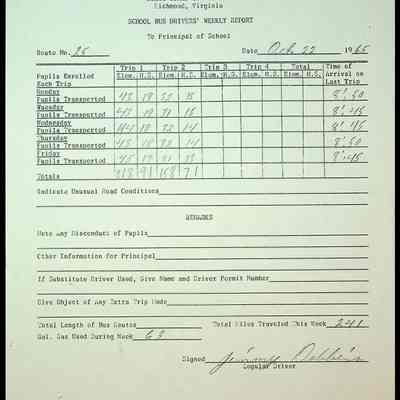 Richmond, Virginia
SCHOOL BUS DRIVERS' WEEKLY REPORT
To Principal of School
Route No. 25 Date Oct 22 1965
Trip 1 Trip 2 Trip 3 Trip 4 Total Time of
Pupils Enrolled Elem. H.S. Elem. H.S. Elem. H.S. Elem. H.S. Elem. H.S. Arrival on
Each Trip Last Trip
Monday
Pupils Transported 18 8:50
Tuesday
Pupils Transported 8:45
Wednesday
Pupils Transported 18 14 8:45
Thursday
Pupils Transported 18 14 8:50
Friday
Pupils Transported 8:45
Totals 218 91 158 71
Indicate Unusual Road Conditions
REMARKS
Note Any Misconduct of Pupils
Other Information for Principal
If Substitute Driver Used, Give Name and Driver Permit Number
Give Object of Any Extra Trip Made
Total Length of Bus Routes Total Miles Traveled This Week 241
Gal. Gas Used During Week 63
Signed Jimmy Dobbins
Regular Driver